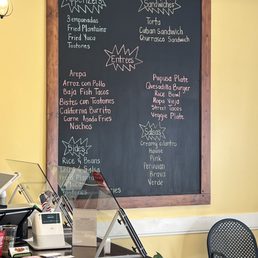 Appetizers
3 empanadas
Fried Plantains
Fried Yuca
Tostones
Sandwiches
Torta
Cuban Sandwich
Churrasco Sandwich
Entrees
Arepa
Arroz con Pollo
Baja Fish Tacos
Bistec con Tostones
California Burrito
Carne Asada Fries
Nachos
Pupusa Plate
Quesadilla Burger
Rice Bowl
Ropa Vieja
Street Tacos
Veggie Plate
Sides
Rice & Beans
Fries
Salsas
Creamy cilantro
House
Pink
Peruvian
Brava
Verde